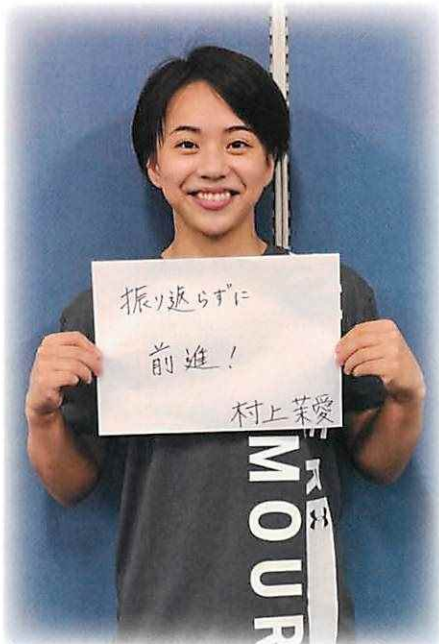 振り返らずに
前進！
村上茉愛
MOUR